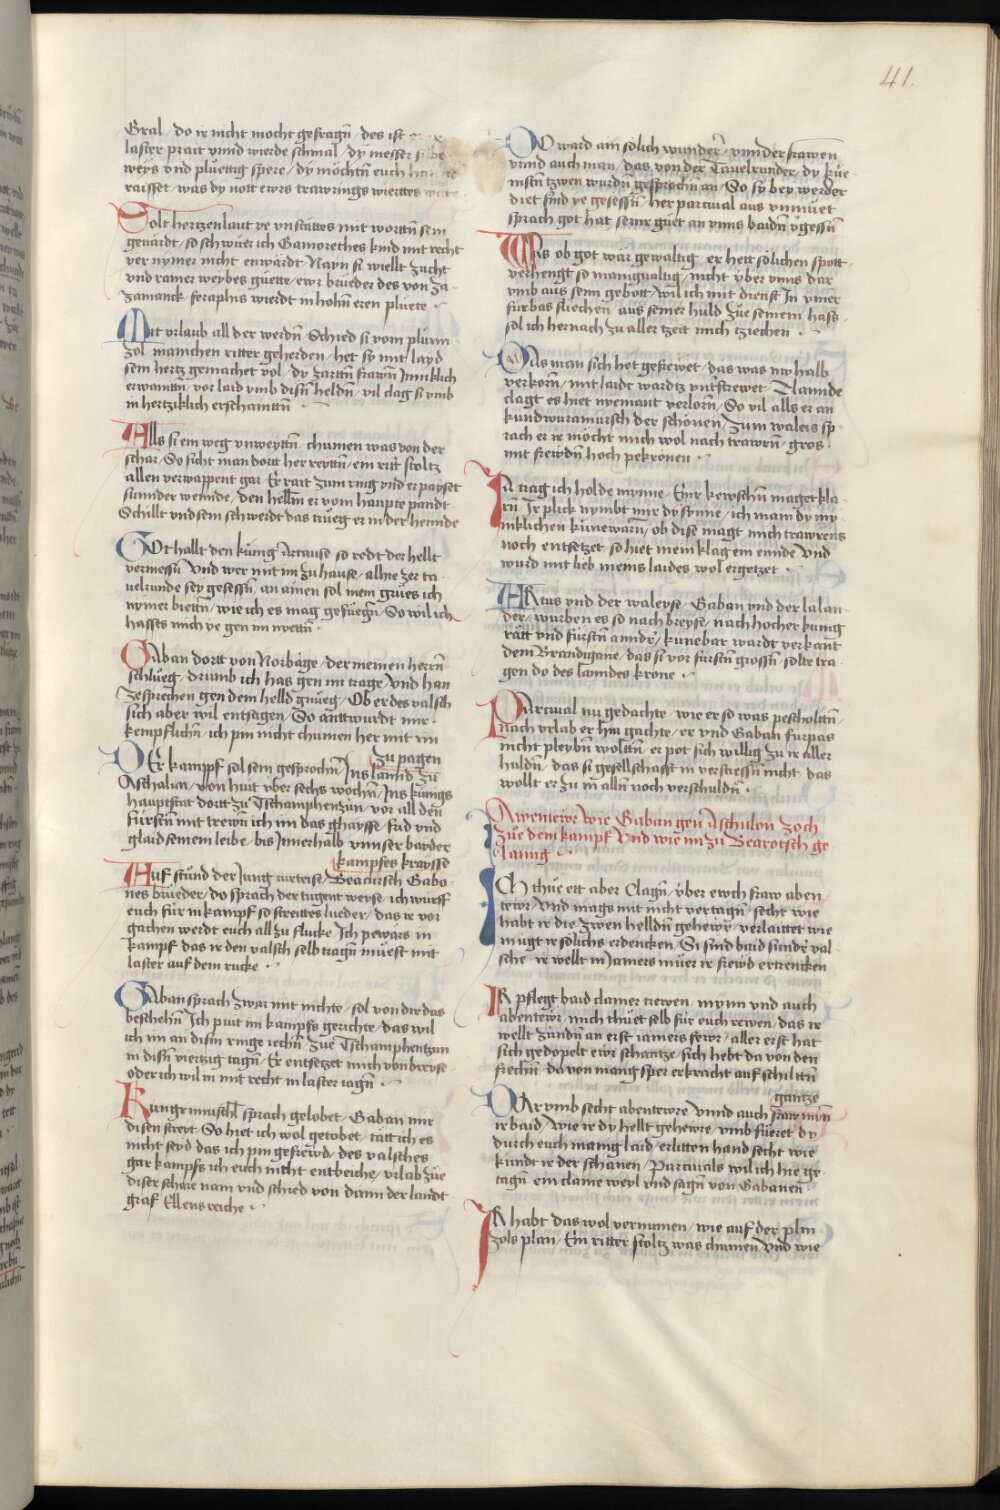 41.
Gral / do ir nicht mocht gefragñ / des ist
laster prait vnnd wierde schmal / dy messer
weys vnd pluettig spere / dy möchtñ euch
raisset / was dy nott ewrs trawrings wiertes
Solt hertzenlaut ye vnstättes mit worttñ sein
geuärdt / so schwüer ich Gamorethes kind mit recht
ver nymer nicht enwärdt Nayn si wiellt zucht
vnd rainer weybes güette / ewr brueder des von Za
Zamanck / feraphis wierdt in hohñ eren pluete
Mit vrlaub all der werdñ Schied si vom plimi
zol manichen ritter geherden / het sy mit layd
sein hertz gemachet vol / dy zarttñ frawñ Inniklich
erwainttñ / vor laid vmb disñ heldñ / vil clag si vmb
in hertziklich erschainttñ
Alls si ein weg vnweyttñ / chumen was von der
schar / So sicht man dortt her reyttñ / ein ritt stoltz
allen verwappent gar Er rait zum ring vnd er payset
sunnder wennde / den hellm er vom haupte pandt
Schillt vnd sein schwerdt das trueg er in der hennde
Got hallt den künig Artause so redt der hellt
vermessñ Vnd wer mit im zu hause / allhie zer ta
uelrunde sey gesessñ / an ainen sol mein grües ich
nymer biettñ / wie ich es mag gefüegñ / So wil ich
hasses mich ye gen im nyettñ
Gaban dortt von Norbäge / der meinen herrñ
schlüeg / drumb ich has gen im trage / vnd han
Zesprechen gen dem helld gnüeg / Ob er des valsch
sich aber wil entsagen / So anttwurdt mir
kempflichñ / ich pin nicht chumen her mit im
zu pagen
Der kampf sol sein gesprochñ / Ins lannd zu
Aschalun / von hiut vber sechs wochñ / Ins künigs
hauptstat dortt zu Tschamphenzun / vor all den
fürstñ mit trewñ ich im das ghaysse / frid vnd
glaid seinem leibe / bis Innerhalb vnnser bayder
kampfes kraysse
Auf stünd der Jung curteise / Beacursch Gabo
nes brueder / do sprach der tugent weyse / ich würff
euch für in kampf so streittes lueder / das ir vor
gachen werdt euch all zu flucke Ich pewars in
kampf das ir den valsch selb tragñ müest mit
laster auf dem rucke
Gaban sprach zwar mit nichte / sol von dir das
beschehñ Ich prüt im kampfs gerichte / das wil
ich im an dism ringe iechñ / Züe Tschamphentzun
in disñ viertzig tagñ / Er entsetzet mich von breyse
oder ich wil in mit recht in laster iagñ
Kungrimuschl sprach gelobet / Gaban mir
disen streyt / So hiet ich wol getobet / tätt ich es
nicht seyd das ich pin gefrewd / des valsches
gar kampfs ich euch nicht entbeiche / vrlab züe
diser schare nam vnd schied von dann der landt
graf Ellens reiche
Do ward am sölich wunder / vnnder frawen
vnnd auch man / das von der Tauelrunder / dy küe
nistñ tzwen wurdñ gesprochñ an / So sy bey werder
diet sind ye gesessñ / her parcital aus vnmüet
sprach got hat seiner güet an vnns baidñ vgessñ
Was ob got wär gewaltig / er hett sölichen spott
verhengt so manigualtig / nicht vber vnns dar
vmb aus seim gebott / wil ich mit dienst In ymer
fürbas fliechen / aus seiner huld züe seinem hass
sol ich hernach zu aller tzeit mich tziechen
Das man sich het gefrewet / das was nw halb
verkorñ / mit laide wardtz vntstrewet / Clamide
clagt es hiet nyemant verlorñ / So vil alls er an
kundwuramursch der schonen / Zum waleis sp
rach er ir möcht mich wol nach trawrñ / gros
mit frewdñ hoch pekronen
Ja trag ich holde mynne / Eur kewschñ maget kla
rñ / Ir plick nymbt mir dy synne / ich main dy my
niklichen künewarñ / ob dise magt mich trawrens
noch entsetzet / so hiet mein klag ein ennde Vnd
wurd mit lieb meins laides wol ergetzet
Artus vnd der waleyse / Gaban vnd der lalan
der / wurben es so nach breyse / nach hocher künig
rätt vnd fürstñ annder / künebar wardt verkant
dem Brandigane / das si vor fürstñ grossñ / solte tra
gen do des lanndes krone
Parcital nu gedachte / wie er so was pescholttñ
nach vrlab er hin gachte / er vnd Gaban fürpas
nicht pleybñ wolttñ / er pot sich willig zu ir aller
huldñ / das si gesellschafft in verstiessñ nicht / das
wollt er zu in allñ noch verschuldñ
Awentewr wie Gaban gen Aschulon zoch
zue dem kampf Vnd wie im zu Bearotsch ge
lanng
Ich thüe ett aber Clagñ / vber ewch fraw aben
tewr / Vnd mags mit nicht vertagñ / secht wie
habt ir die zwen helldñ gehewr / verlaittet wie
mügt ir sölichs erdencken / Si sind baid sunder val
sche / ir wellt in Jamers müer ir frewd ertrencken
Ir pflegt baid clainer trewen / mynn vnd auch
abentewr / mich thüet selb für euch rewen / das ir
wellt zundñ an erst iamers fewr / aller erst hat
sich gedöpelt ewr schantze / sich hebt da von den
frechñ / da von mang sper erkracht auf schilttñ
gantze
Dar vmb secht abentewre Vnnd auch fraw mỹn
ir baid / Wie ir dy hellt gehewre / vmb füeret dy
durch euch manig laid / erlitten hand secht wie
kündt ir der schänen / Parciuals wil ich hie ge
tagñ / ein claine weyl vnd sagñ von Gabanen
Ir habt das wol vernumen / wie auf der plm
zols plan / Ein ritter stoltz was chumen Vnd wie